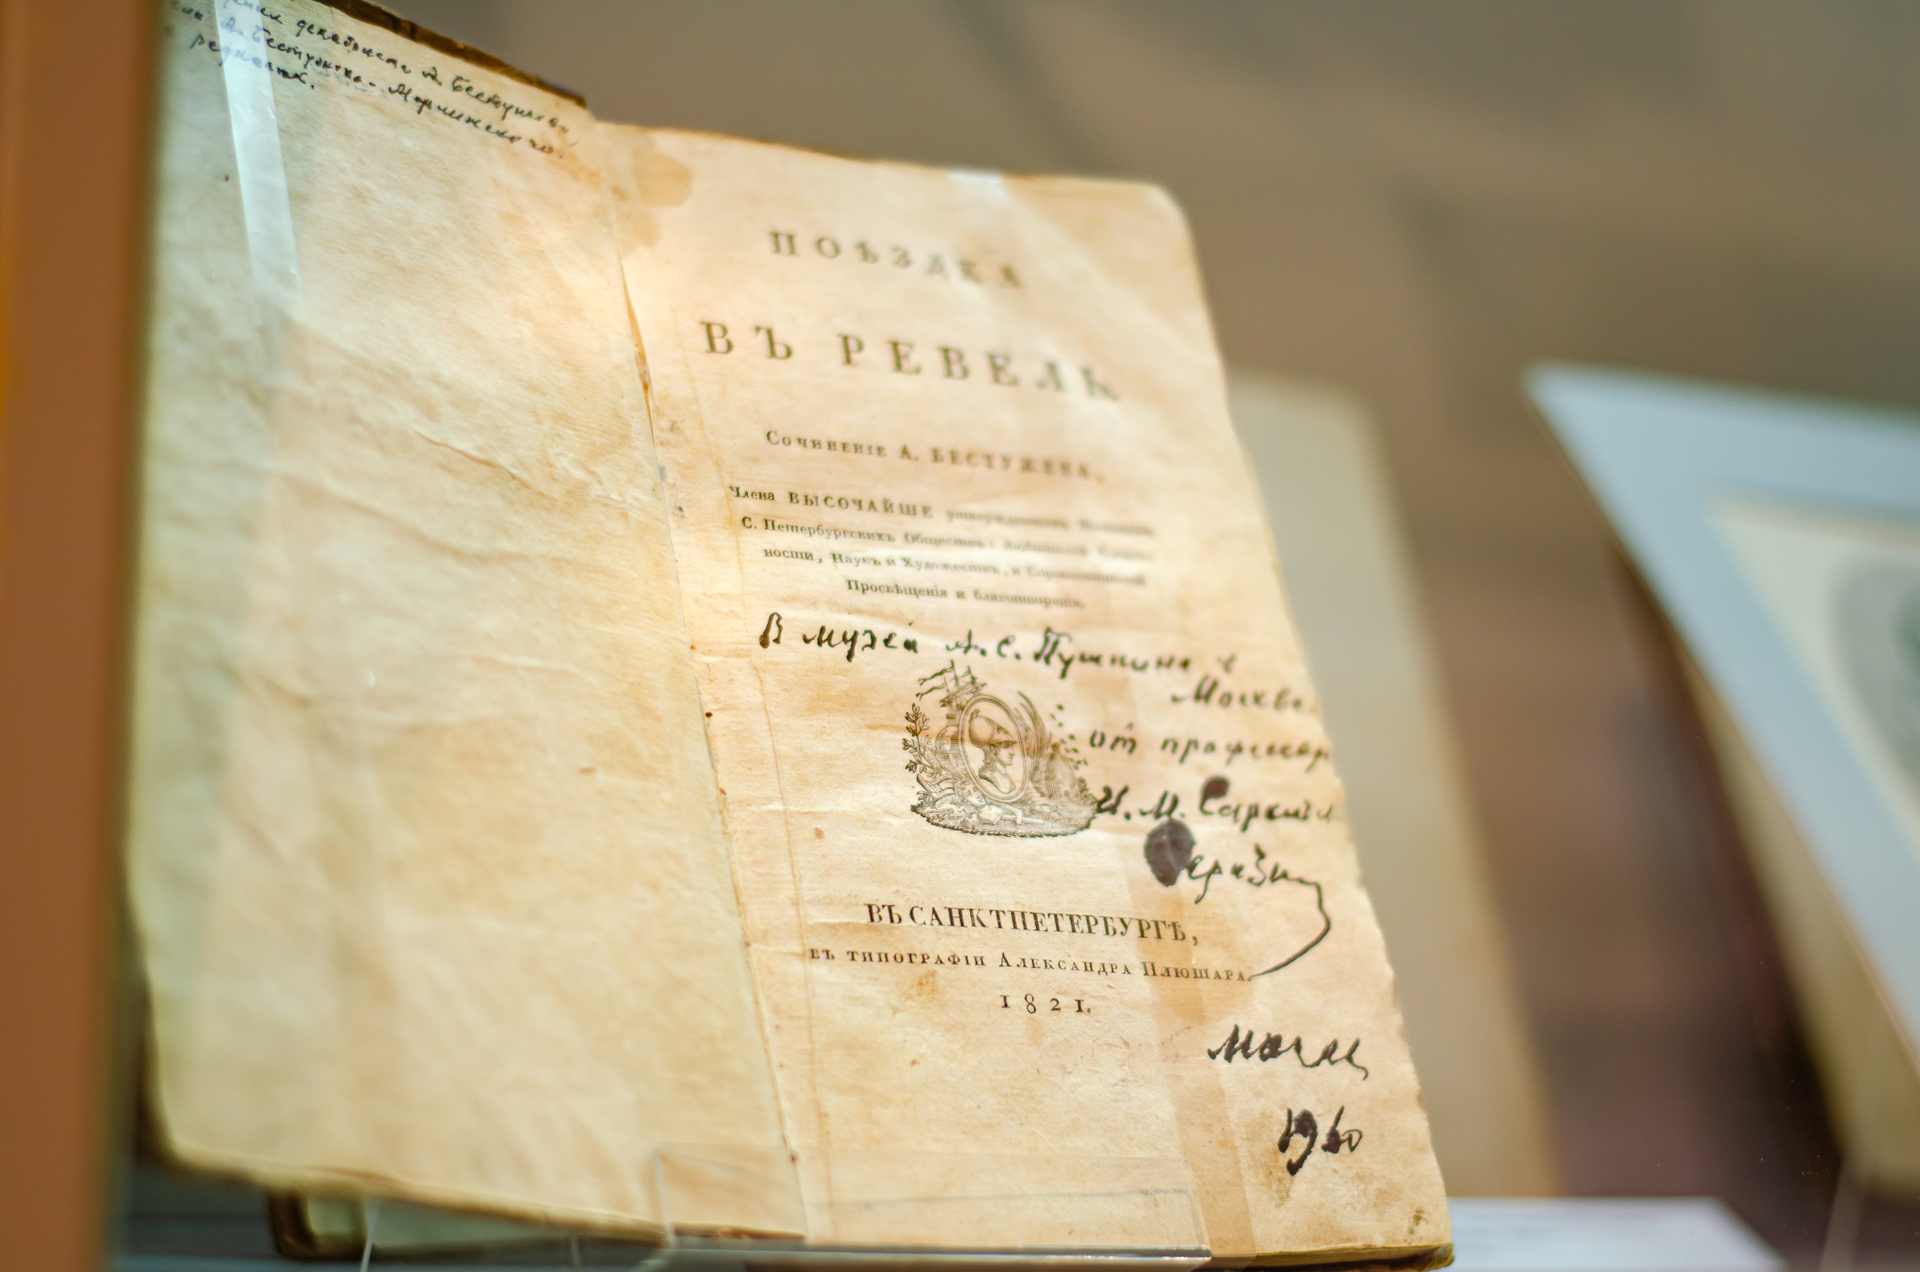 декабриста А. Бестужева,
А. Бестужева-Марлинского.
ПОѢЗДКА
ВЪ РЕВЕЛЬ
Сочиненіе А. БЕСТУЖЕВА,
Члена ВЫСОЧАЙШЕ утвержденныхъ
С. Петербургскихъ Обществъ: Любителей Словес-
ности, Наукъ и Художествъ, и Соревнователей
Просвѣщенія и благотворенія.
В музей А. С. Пушкина в
Москве.
от профессора
И. М. Саркизова-
Серазини
ВЪ САНКТПЕТЕРБУРГѢ,
въ типографіи Александра Плюшара.
1821.
Москва
1960